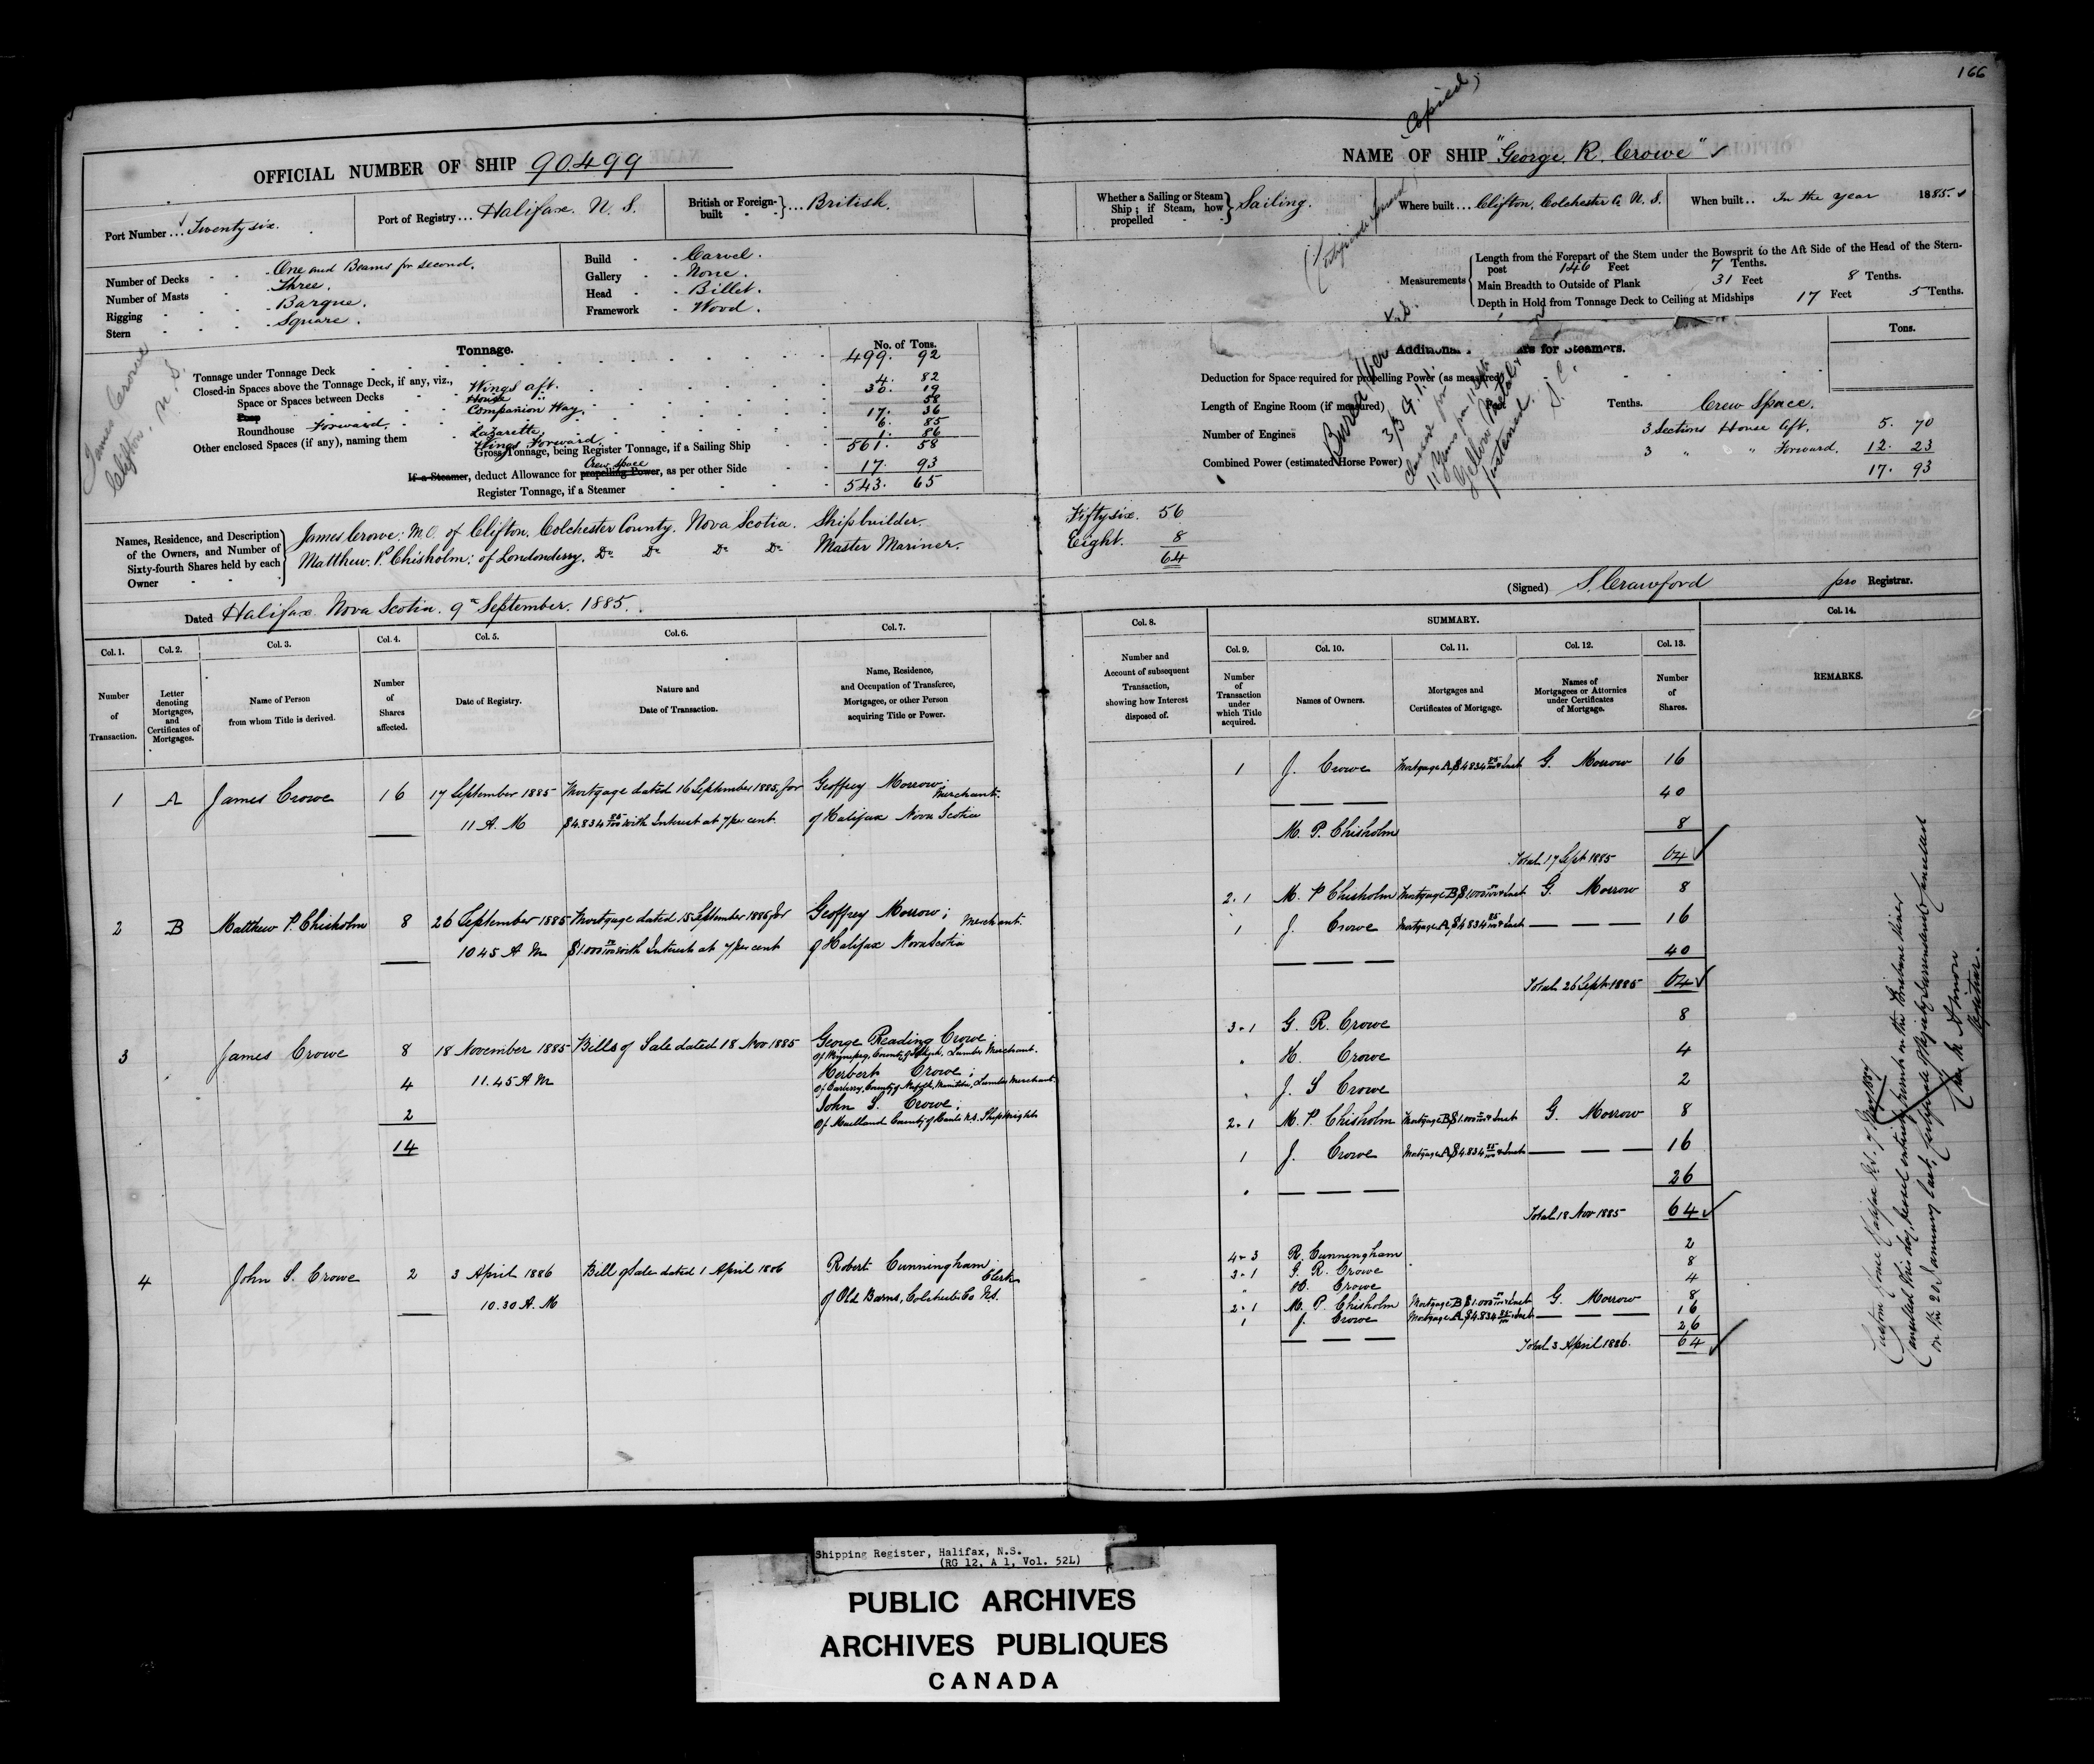 166
Copied,
OFFICIAL NUMBER OF SHIP 90.499
NAME OF SHIP "George R. Crowe" ✓
Port Number ... Twenty six.
Port of Registry ... Halifax. N. S.
British or Foreign-built } ... British.
Whether a Sailing or Steam Ship; if Steam, how propelled } Sailing.
Where built ... Clifton, Colchester Co N. S.
When built .. In the year 1885.
Number of Decks - One and Beams for second.
Number of Masts - Three.
Rigging - Barque.
Stern - Square.
Build - Carvel.
Gallery - None.
Head - Billet.
Framework - Wood.
Measurements
Length from the Forepart of the Stem under the Bowsprit to the Aft Side of the Head of the Stern-
post 146 Feet 7 Tenths.
Main Breadth to Outside of Plank 31 Feet 8 Tenths.
Depth in Hold from Tonnage Deck to Ceiling at Midships 17 Feet 5 Tenths.
James Crowe
Clifton, N. S.
Tonnage.
No. of Tons.
Tonnage under Tonnage Deck 499. 92
Closed-in Spaces above the Tonnage Deck, if any, viz.,
Space or Spaces between Decks Wings aft. 4. 82
Poop House " 30. 19
Companion Way. 58
Roundhouse Forward. 17. 36
Other enclosed Spaces (if any), naming them Lazarette. 6. 85
Wings Forward. 1. 86
Gross Tonnage, being Register Tonnage, if a Sailing Ship 561. 58
If a Steamer, deduct Allowance for propelling Power, Crew Space as per other Side 17. 93
Register Tonnage, if a Steamer 543. 65
for Steamers.
Tons.
Deduction for Space required for propelling Power (as measured)
Length of Engine Room (if measured) Tenths.
Number of Engines
Combined Power (estimated Horse Power)
Crew Space.
3 Sections House Aft. 5. 70
3 " " Forward. 12. 23
17. 93
Names, Residence, and Description of the Owners, and Number of Sixty-fourth Shares held by each Owner
James Crowe: M.O. of Clifton, Colchester County, Nova Scotia. Shipbuilder. Fifty six. 56
Matthew. P. Chisholm: of Londonderry. Do Do Do Do Master Mariner. Eight. 8
64
Dated Halifax Nova Scotia. 9th September. 1885.
(Signed) S. Crawford pro Registrar.
SUMMARY.
Col. 1. Number of Transaction.
Col. 2. Letter denoting Mortgages, and Certificates of Mortgages.
Col. 3. Name of Person from whom Title is derived.
Col. 4. Number of Shares affected.
Col. 5. Date of Registry.
Col. 6. Nature and Date of Transaction.
Col. 7. Name, Residence, and Occupation of Transferee, Mortgagee, or other Person acquiring Title or Power.
Col. 8. Number and Account of subsequent Transaction, showing how Interest disposed of.
Col. 9. Number of Transaction under which Title acquired.
Col. 10. Names of Owners.
Col. 11. Mortgages and Certificates of Mortgage.
Col. 12. Names of Mortgagees or Attornies under Certificates of Mortgage.
Col. 13. Number of Shares.
Col. 14. REMARKS.
1 A James Crowe 16 17 September 1885 Mortgage dated 16 September 1885, for Geoffrey Morrow; Merchant.
11 A. M $4.834 25/100 with Interest at 7 per cent. of Halifax Nova Scotia
1 J. Crowe Mortgage A $4834 25/100 & Inst G. Morrow 16
40
M. P. Chisholm 8
Total 17 Sept 1885 64 ✓
2 B Matthew P. Chisholm 8 26 September 1885 Mortgage dated 15 September 1885 for Geoffrey Morrow; Merchant.
10 45 A M $1.000 with Interest at 7 per cent of Halifax Nova Scotia
2. 1 M. P Chisholm Mortgage B $1.000 & Inst G. Morrow 8
1 J. Crowe Mortgage A $4834 25/100 & Inst 16
40
Total 26 Sept 1885 64 ✓
3 James Crowe 8 18 November 1885 Bills of Sale dated 18 Nov 1885 George Reading Crowe;
of Winnipeg, County of Selkirk, Lumber Merchant.
4 11.45 A M Herbert Crowe;
of Carberry, County of Norfolk, Manitoba, Lumber Merchant
2 John S. Crowe;
of Maitland County of Hants N.S. Shipwright
14
3. 1 G. R. Crowe 8
" H. Crowe 4
" J. S Crowe 2
2. 1 M. P. Chisholm Mortgage B $1.000 & Inst G. Morrow 8
1 J. Crowe Mortgage A $4.834 25/100 & Inst 16
26
Total 18 Nov 1885 64 ✓
4 John S. Crowe 2 3 April 1886 Bill of Sale dated 1 April 1886 Robert Cunningham; Clerk
10.30 A. M of Old Barns, Colchester Co N.S.
4. 3 R. Cunningham 2
3. 1 G. R. Crowe 8
" H. Crowe 4
2. 1 M. P. Chisholm Mortgage B $1.000 & Inst G. Morrow 8
1 J. Crowe Mortgage A $4834 25/100 & Inst 16
26
Total 3 April 1886. 64 ✓
Custom House Halifax N.S. 7 1887
Cancelled this day, Vessel entirely
on the 20 January last, Certificate
Registrar.
Shipping Register, Halifax, N.S.
(RG 12, A 1, Vol. 52L)
PUBLIC ARCHIVES
ARCHIVES PUBLIQUES
CANADA